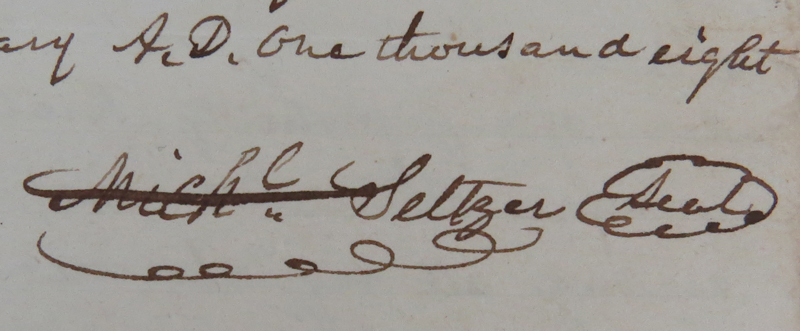 ary A. D. One thousand eight
Michl. Seltzer Seal